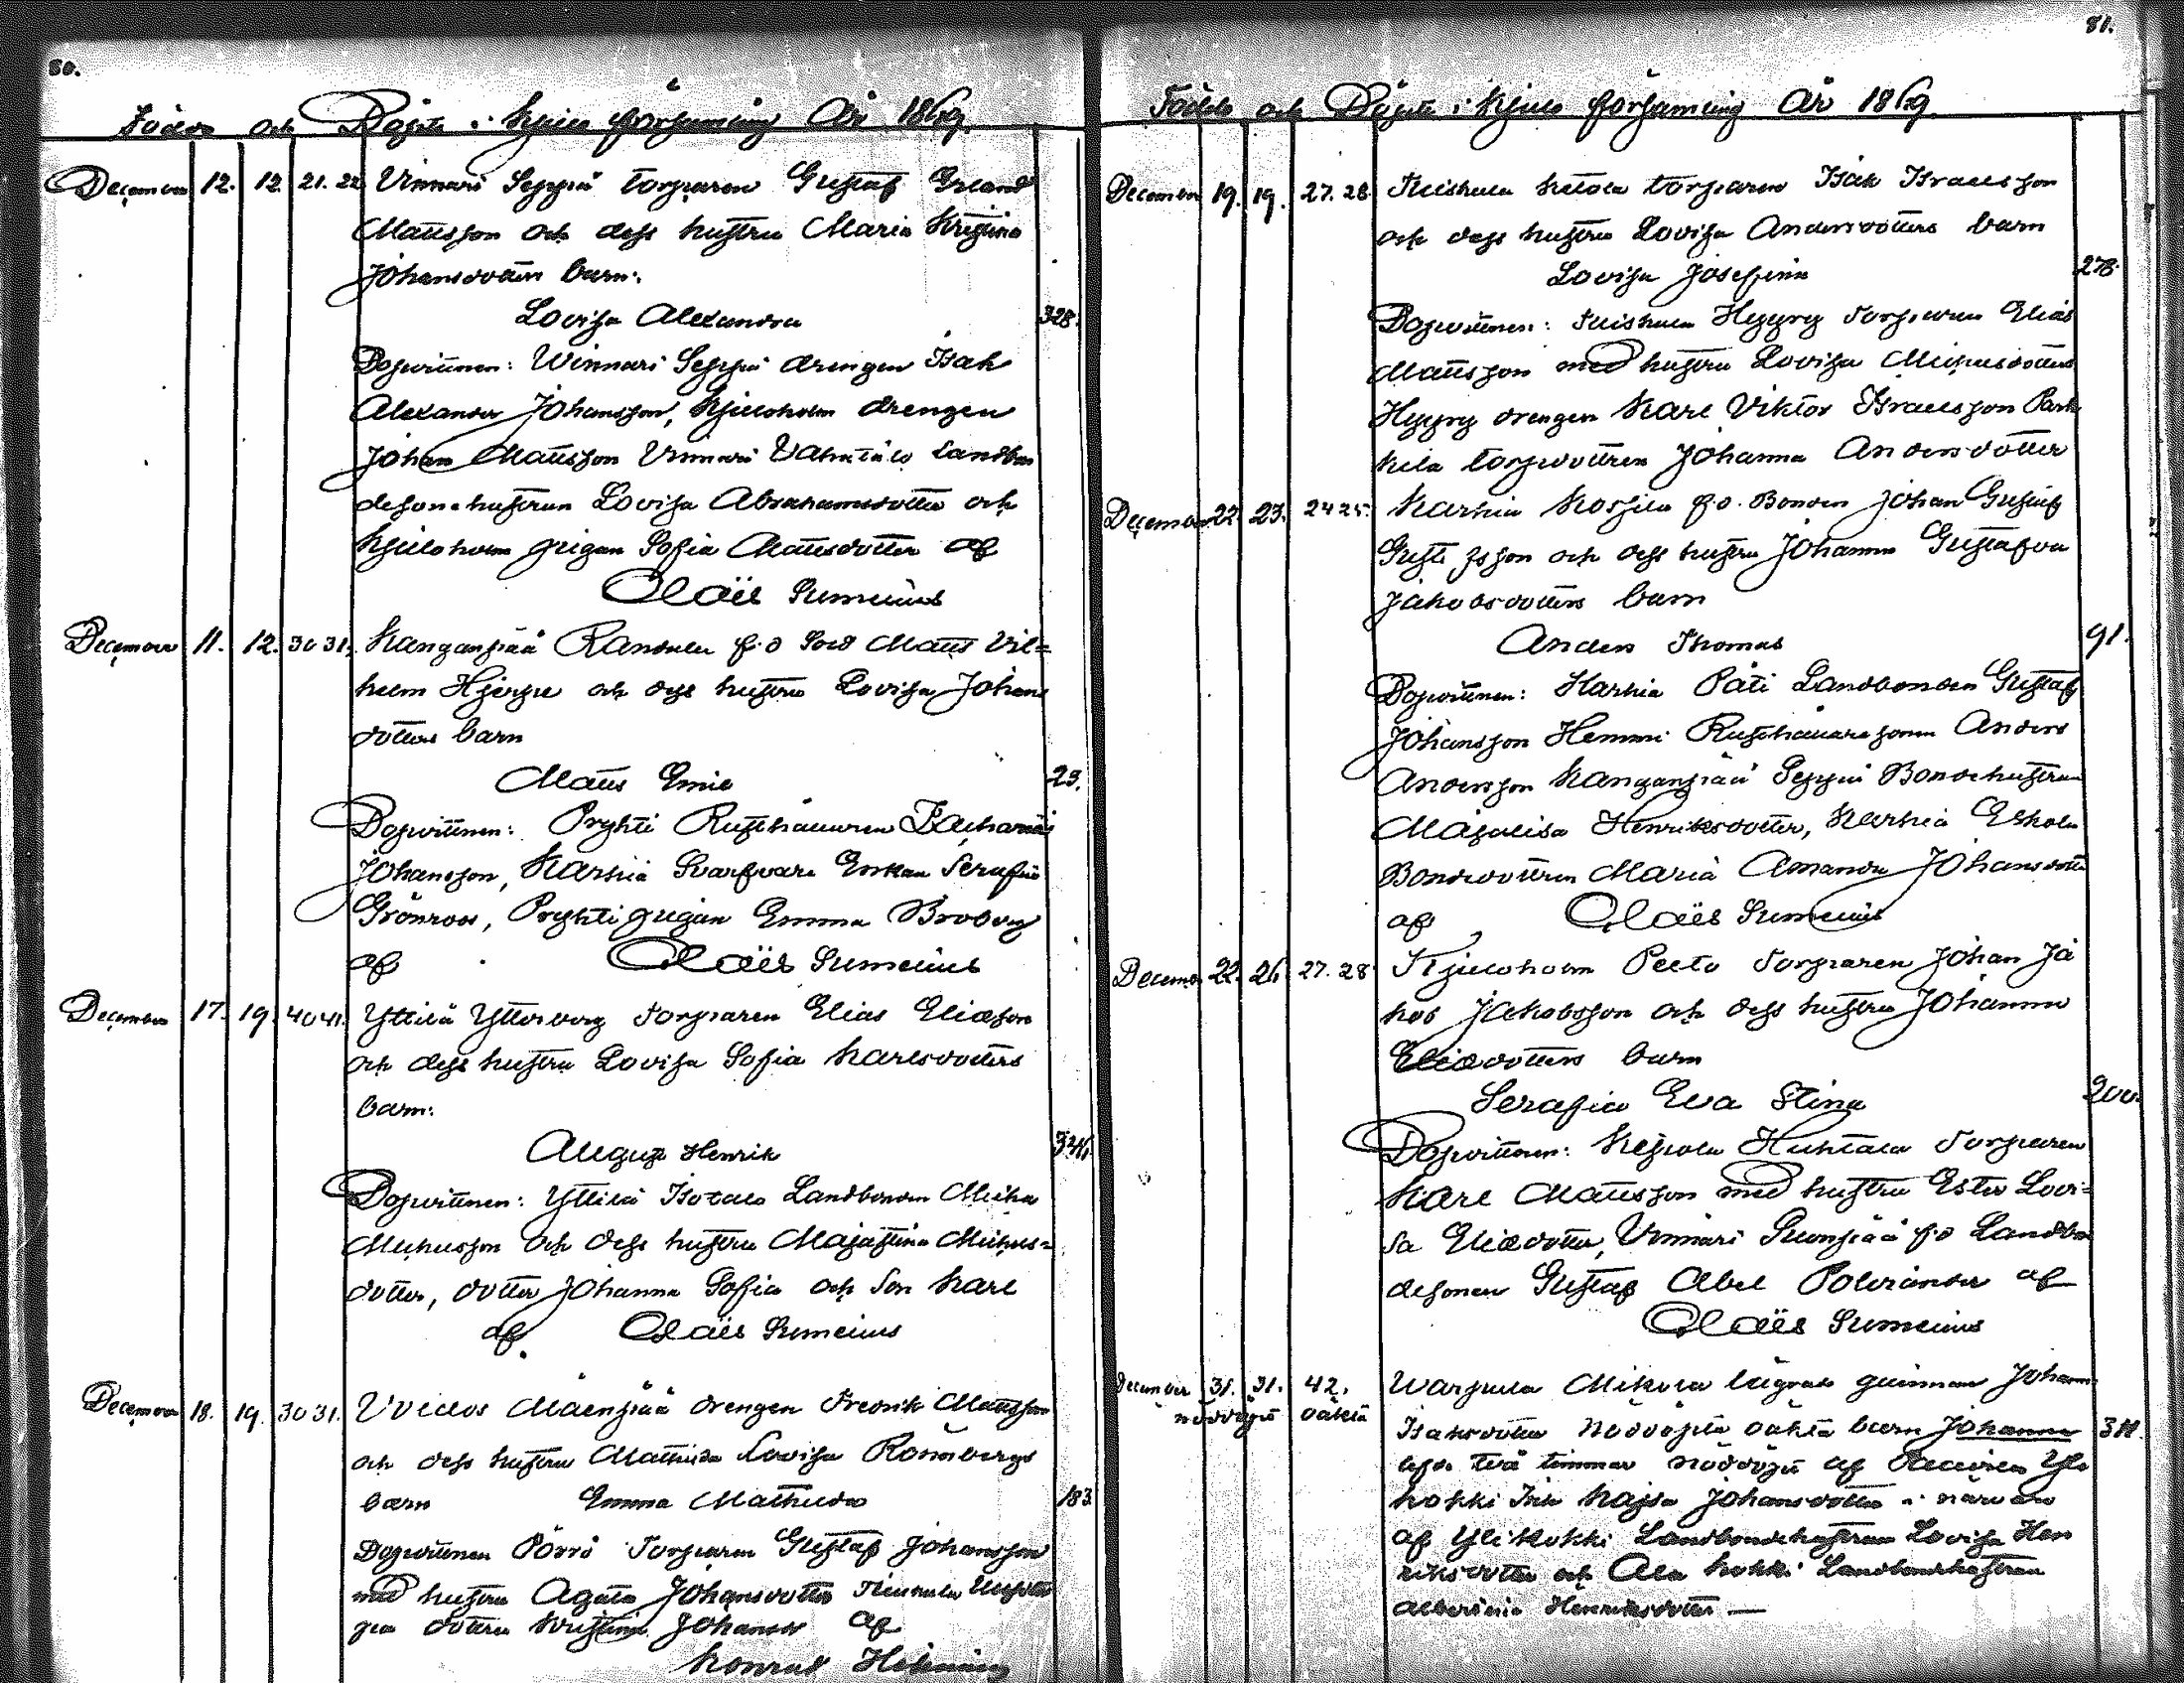 80.
Födde och Döpte i Kjulo församling År 1869.
December 12. 12 21. 22 Vinnari Seppä torparen Gustaf Erland
Mattsson och dess hustru Maria Kristina
Johansdotters barn:
Lovisa Alexandra 328.
Dopvittnen: Winnari Seppä drengen Isak
Alexander Johansson, Kjuloholm drengen
Johan Mattsson Vinnari Landbon
desone hustrun Lovisa Abrahamsdotter och
Kjuloholm pigan Sofia Mattsdotter af
Claës Sumelius
December 11. 12. 30 31. Kanganpää Randula f.d Sold Matts Vil=
helm Hjerpe och dess hustru Lovisa Johans
dotters barn
Matts Emil 29.
Dopvittnen: Pryhti Rusthållaren Zacharias
Johansson, Karhia Svarfvare Enkan Serafia
Grönroos, Pryhti pigan Emma Broberg
af Claës Sumelius
December 17. 19. 40 41. Yttilä Ytterborg Torparen Elias Eliæson
och dess hustru Lovisa Sofia Karlsdotters
barn:
August Henrik
Dopvittnen: Yttilä Isotalo Landbonden Micha
Michusson och dess hustru Majastina Michus=
dotter, dotter Johanna Sofia och Son Karl
af Claës Sumelius
December 18. 19. 30 31. Mäenpää drengen Fredrik Mattsson
och dess hustru Mathilda Lovisa Rosenbergs
barn Emma Mathilda 183
Dopvittnen Pörrö Torparen Gustaf Johansson
med hustru Agata Johansdotter
dottren Kristina Johansd af
Konrad
81.
Födde och Döpte i Kjulo församling År 1869
December 19. 19. 27. 28 Ketola torparen Isak Israelsson
och dess hustru Lovisa Andersdotters barn
Lovisa Josefina 278.
Dopvittnen: Hyypry Torparen Elias
Mattsson med hustru Lovisa Michusdotter
Hyypry drengen Karl Viktor Israelsson
torpdottren Johanna Andersdotter
December 22. 23. 24 25. Karhia f.d. Bonden Johan Gustaf
Gustafsson och dess hustru Johanna Gustafva
Jakobsdotters barn
Anders Thomas 91.
Dopvittnen: Karhia Päti Landbonden Gustaf
Johansson Hemmi Rusthållaresonen Anders
Andersson Kanganpää Seppä Bondehustrun
Majalisa Henriksdotter, Karhia Eskola
Bondedottren Maria Amanda Johansdotter
af Claës Sumelius
December 22. 26. 27. 28 Kjuloholm Torparen Johan Ja
kob Jakobsson och dess hustru Johanna
Eliædotters barn
Serafia Eva Stina 200.
Dopvittnen: Kepola Huhtala Torparen
Karl Mattsson med hustru Ester Lovi=
sa Eliædotter, Vinnari Suonpää f.d Landbon
desonen Gustaf Abel Polviander af
Claës Sumelius
December 31. 31. 42. Warpula Mikola qvinnan Johanna
nöddöpta oäkta Isaksdotter nöddöpta oäkta barn Johanna
två timmar nöddöpt af
Kokki Kajsa Johansdotter i närvaro
af Yli Kokki Landbondehustrun Lovisa Hen
riksdotter och Ala Kokki Landbondehustrun
Albertina Henriksdotter —